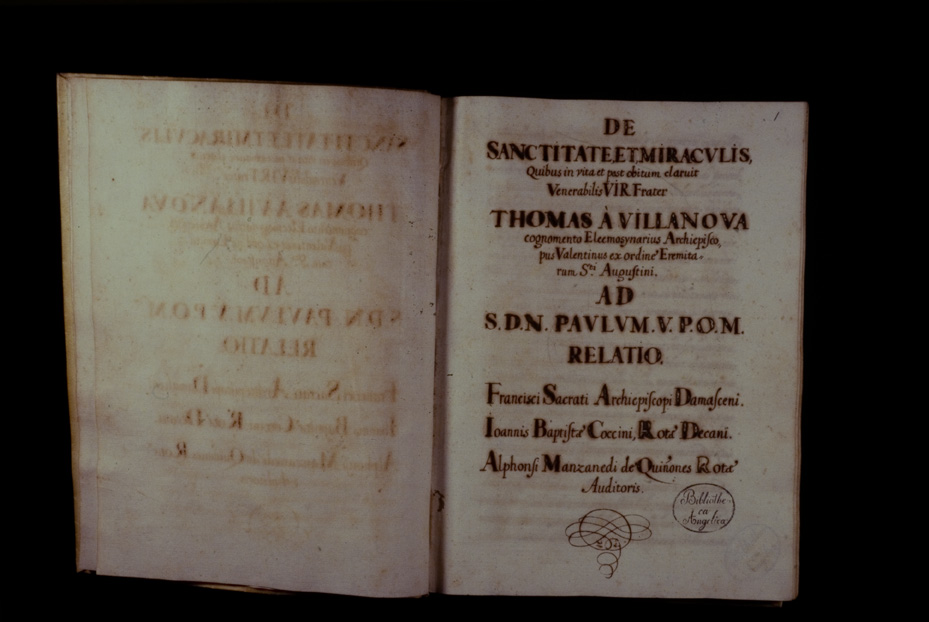 1
DE
SANCTITATE, ET, MIRACVLIS,
Quibus in vita et post obitum claruit
Venerabilis VIR Frater
THOMAS À VILLANOVA
cognomento Eleemosynarius Archiepiſco,
pus Valentinus ex ordine Eremita-
rum S.ti Auguſtini.
AD
S.D.N. PAVLVM.V. P.O.M.
RELATIO.
Franciſci Sacrati Archiepiſcopi Damaſceni.
Ioannis Baptiſtæ Coccini, Rotæ Decani.
Alphonſi Manzanedi de Quiñones Rotæ
Auditoris.
Bibliothe-
ca
Angelica